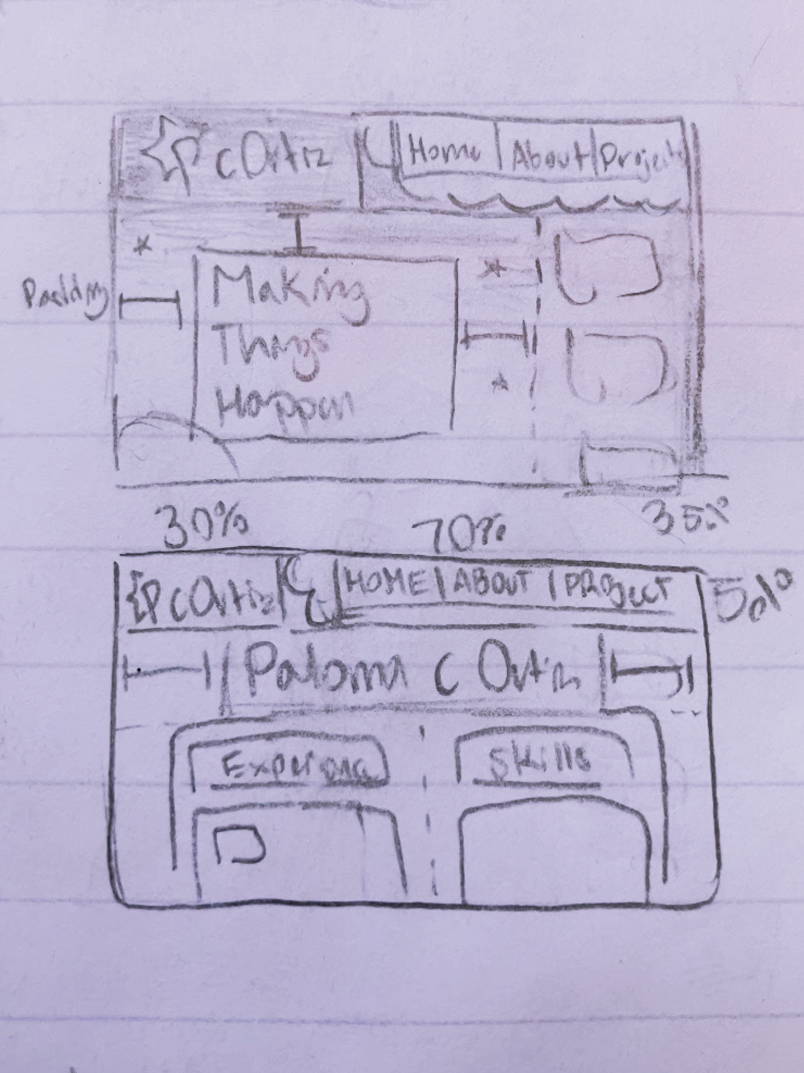 P c Ortiz Home | About | Project
Padding
Making
Things
Happen
30% 70% 35%
P c Ortiz HOME | ABOUT | PROJECT
50%
Paloma c Ortiz
Experience Skills